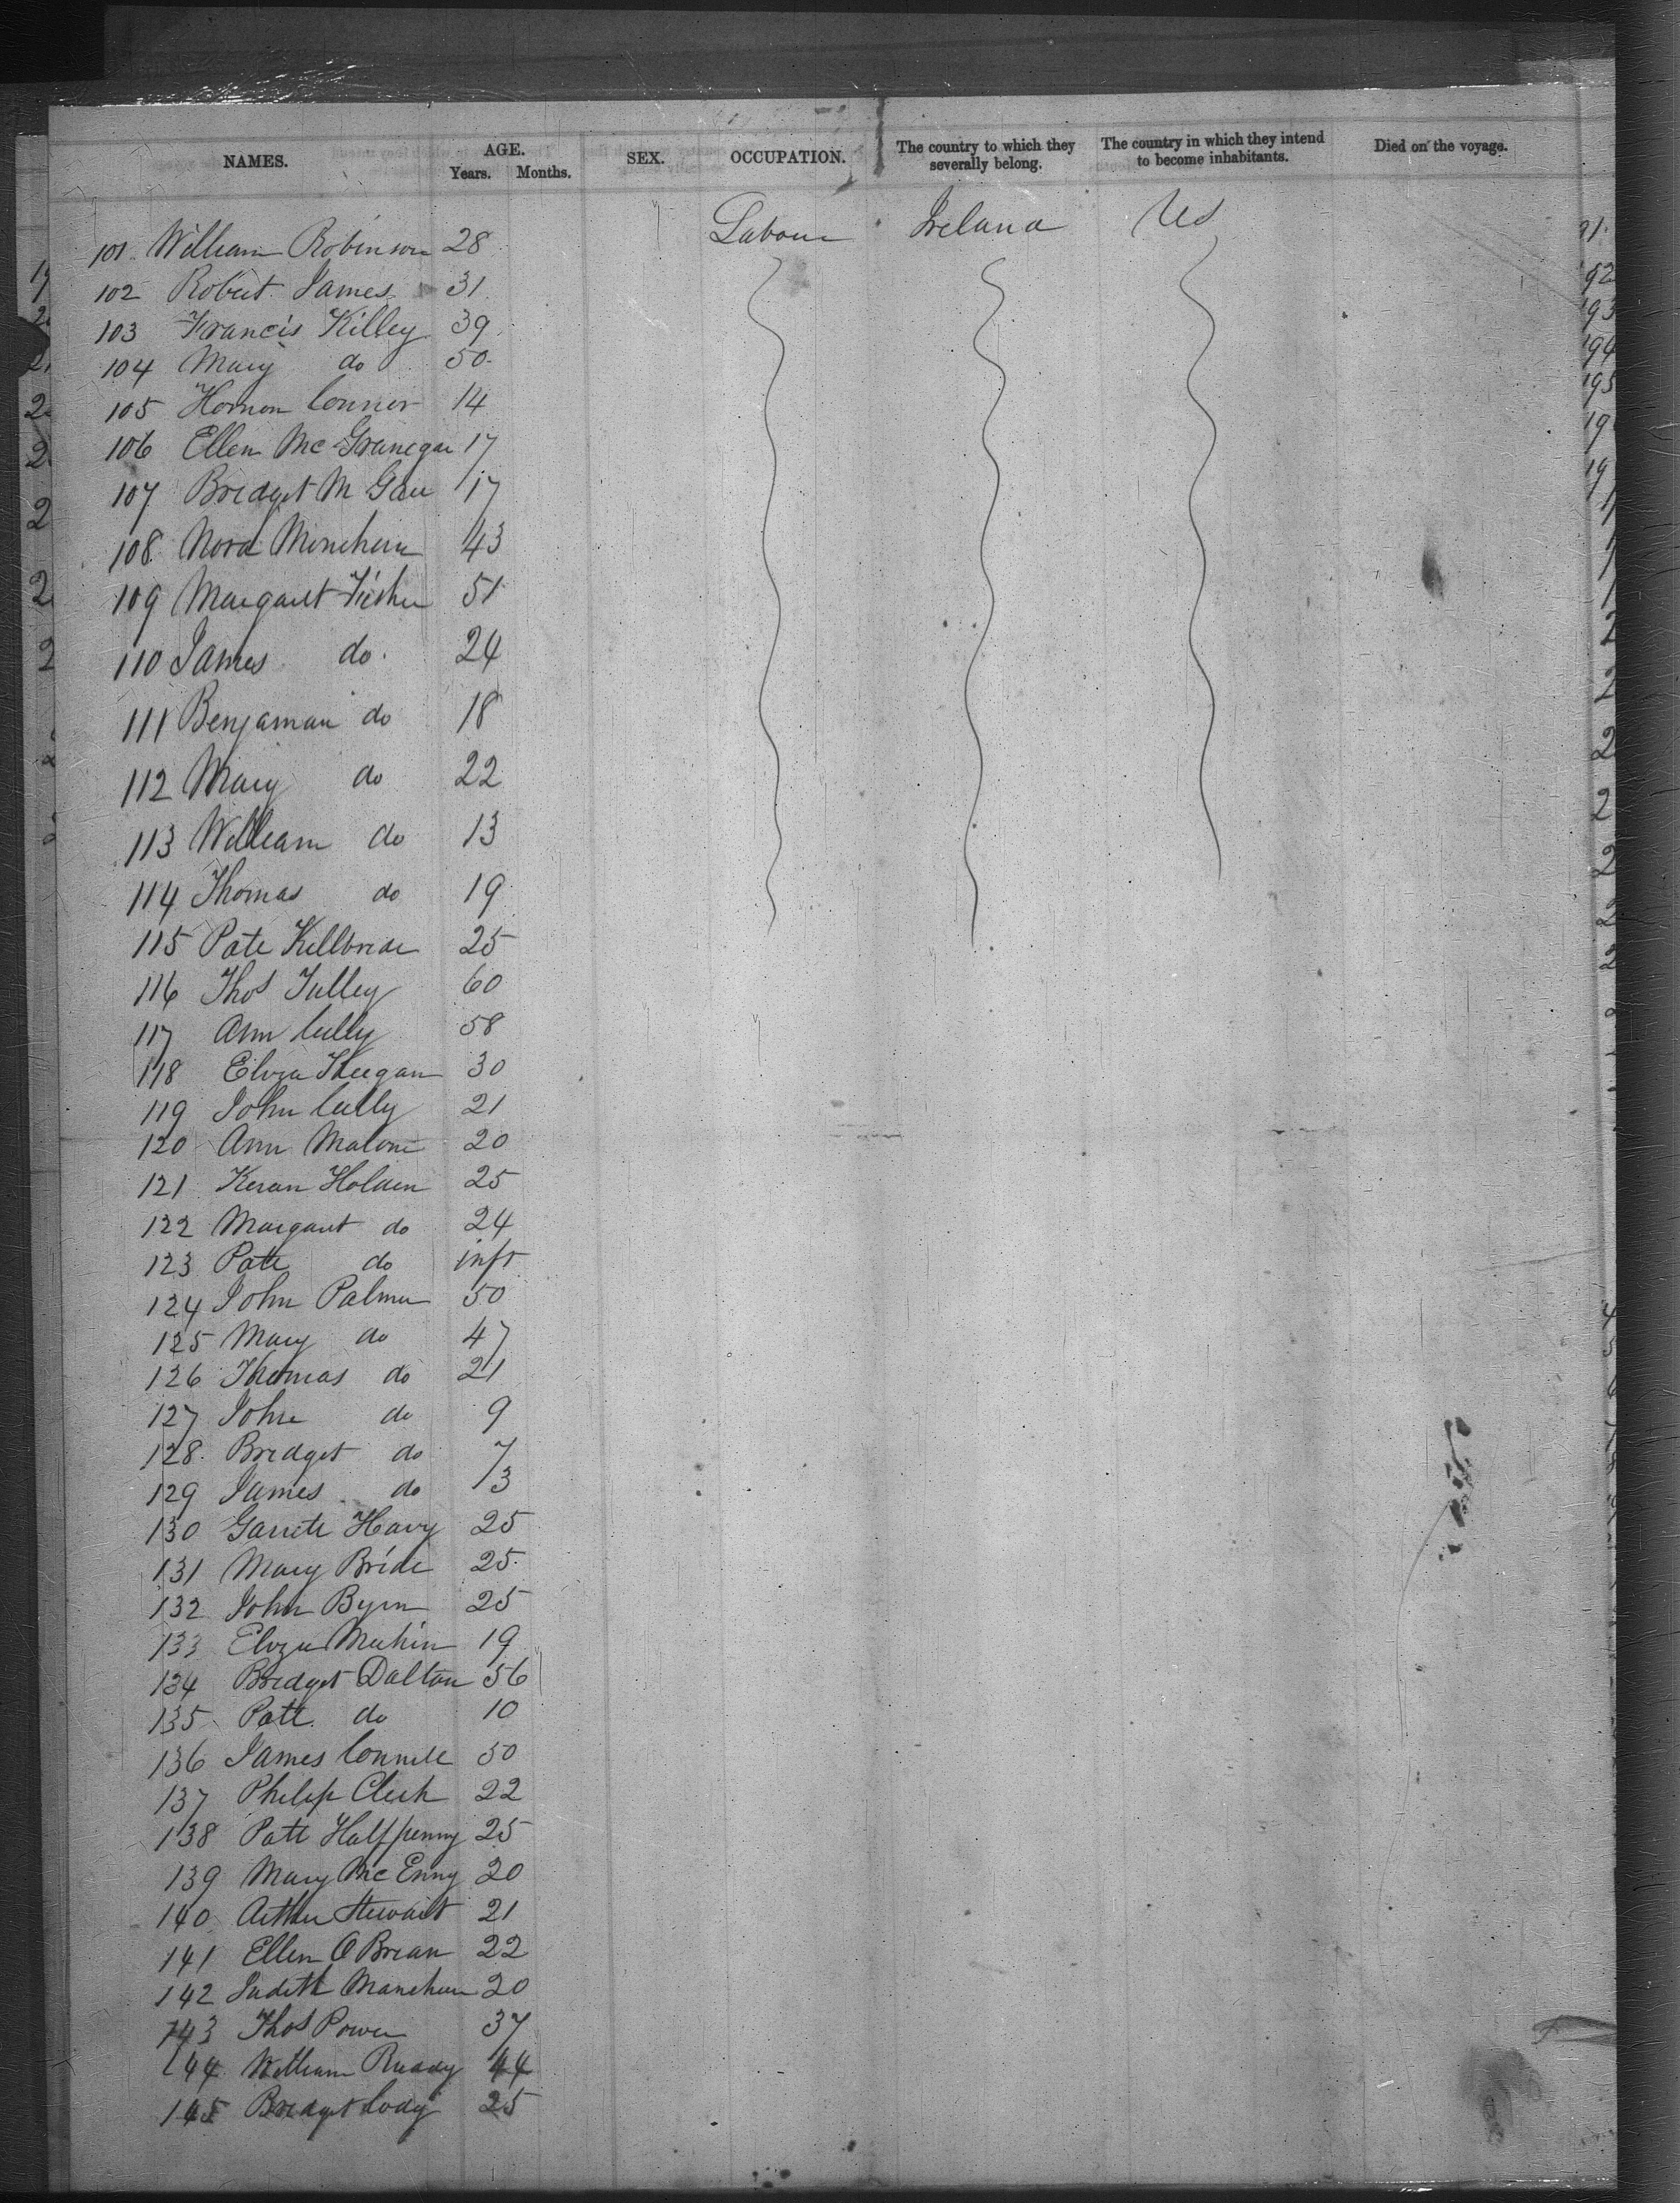 NAMES. AGE. Years. Months. SEX. OCCUPATION. The country to which they severally belong. The country in which they intend to become inhabitants. Died on the voyage.
101 William Robinson 28 Labour Ireland US
102 Robert James 31
103 Francis Killey 39
104 Mary do 50
105 Connor 14
106 Ellen Mc 17
107 Bridget M Gau 17
108 Nora 43
109 Margaret Fisher 51
110 James do 24
111 Benjaman do 18
112 Mary do 22
113 William do 13
114 Thomas do 19
115 Pate Kellbride 25
116 Thos Tulley 60
117 Ann Cully 58
118 Eliza Keegan 30
119 John Cully 21
120 Ann Malone 20
121 Keran Holden 25
122 Margaret do 24
123 Patt do inft
124 John Palmer 50
125 Mary do 47
126 Thomas do 21
127 John do 9
128 Bridget do 7
129 James do 3
130 Garrett Havy 25
131 Mary Bride 25
132 John Byrn 25
133 Eliza Mehin 19
134 Bridget Dalton 56
135 Patt do 10
136 James Connell 50
137 Philip Clerk 22
138 Patt Halfpenny 25
139 Mary McEnny 20
140 Arthur Stewart 21
141 Ellen O Brian 22
142 Judith 20
143 Thos Power 37
144 William Ruddy 44
145 Bridget Cody 25